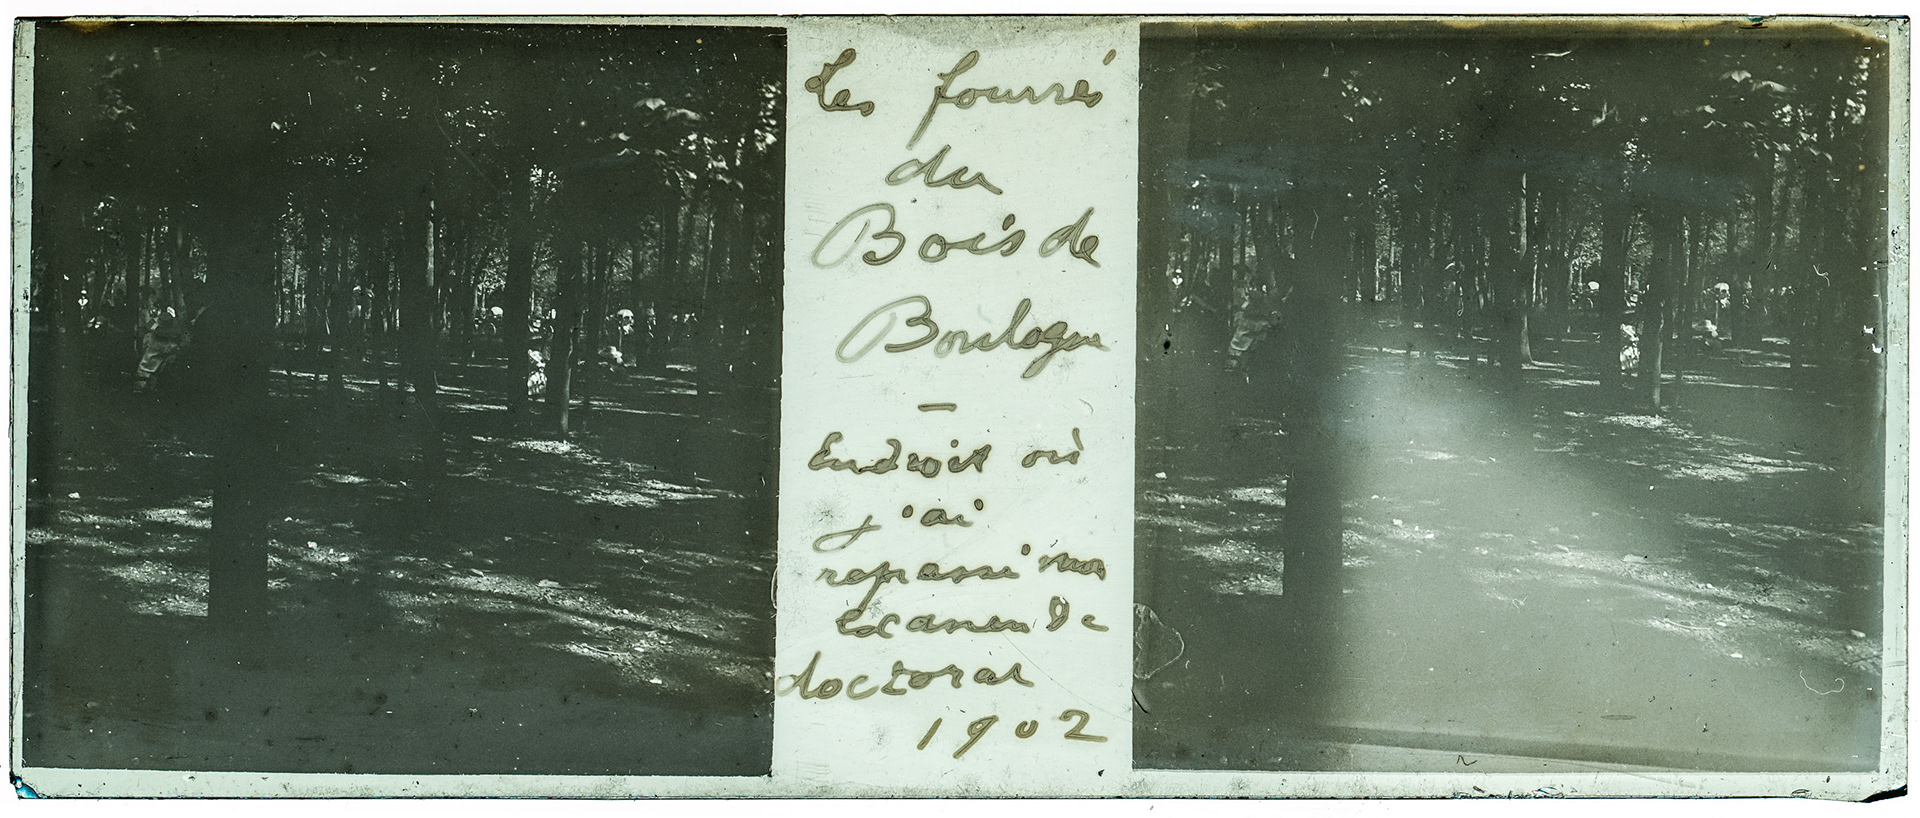 Les fourrés
du
Bois de
Boulogne
—
Endroit où
j'ai
repassé mon
examen de
doctorat
1902